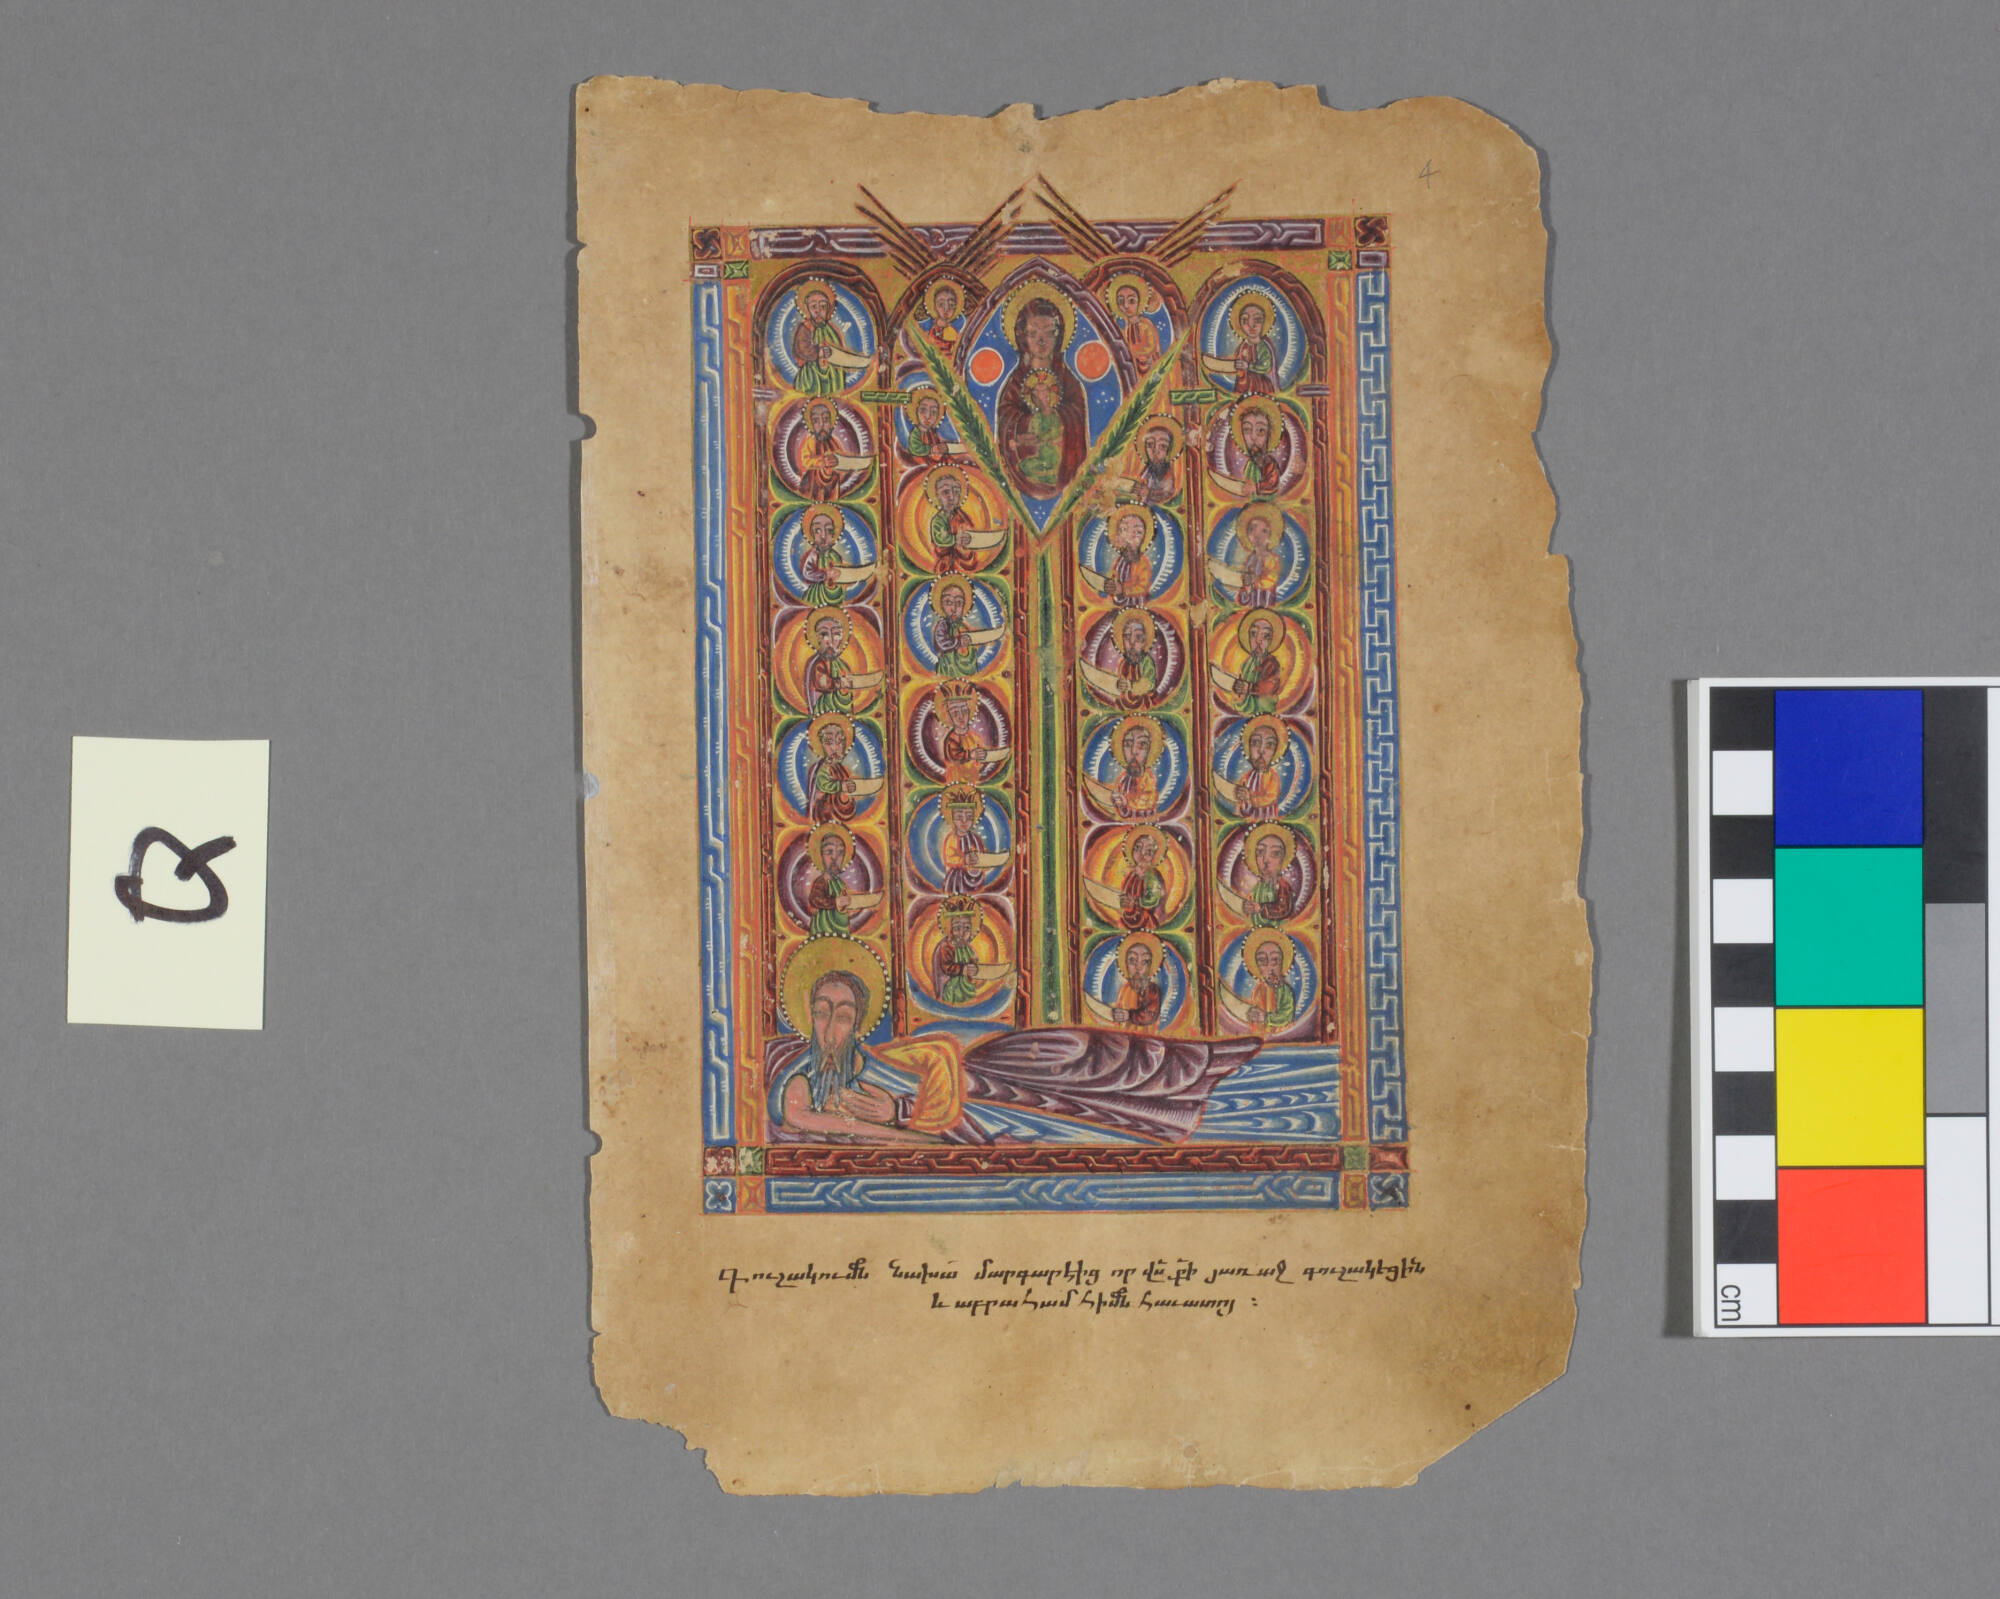 4
Գուշակումն նախա մարգարէից որ վս քի յառաջ գուշակեցին
և աբրահամ հիմն հաւատոյ :
Q
cm